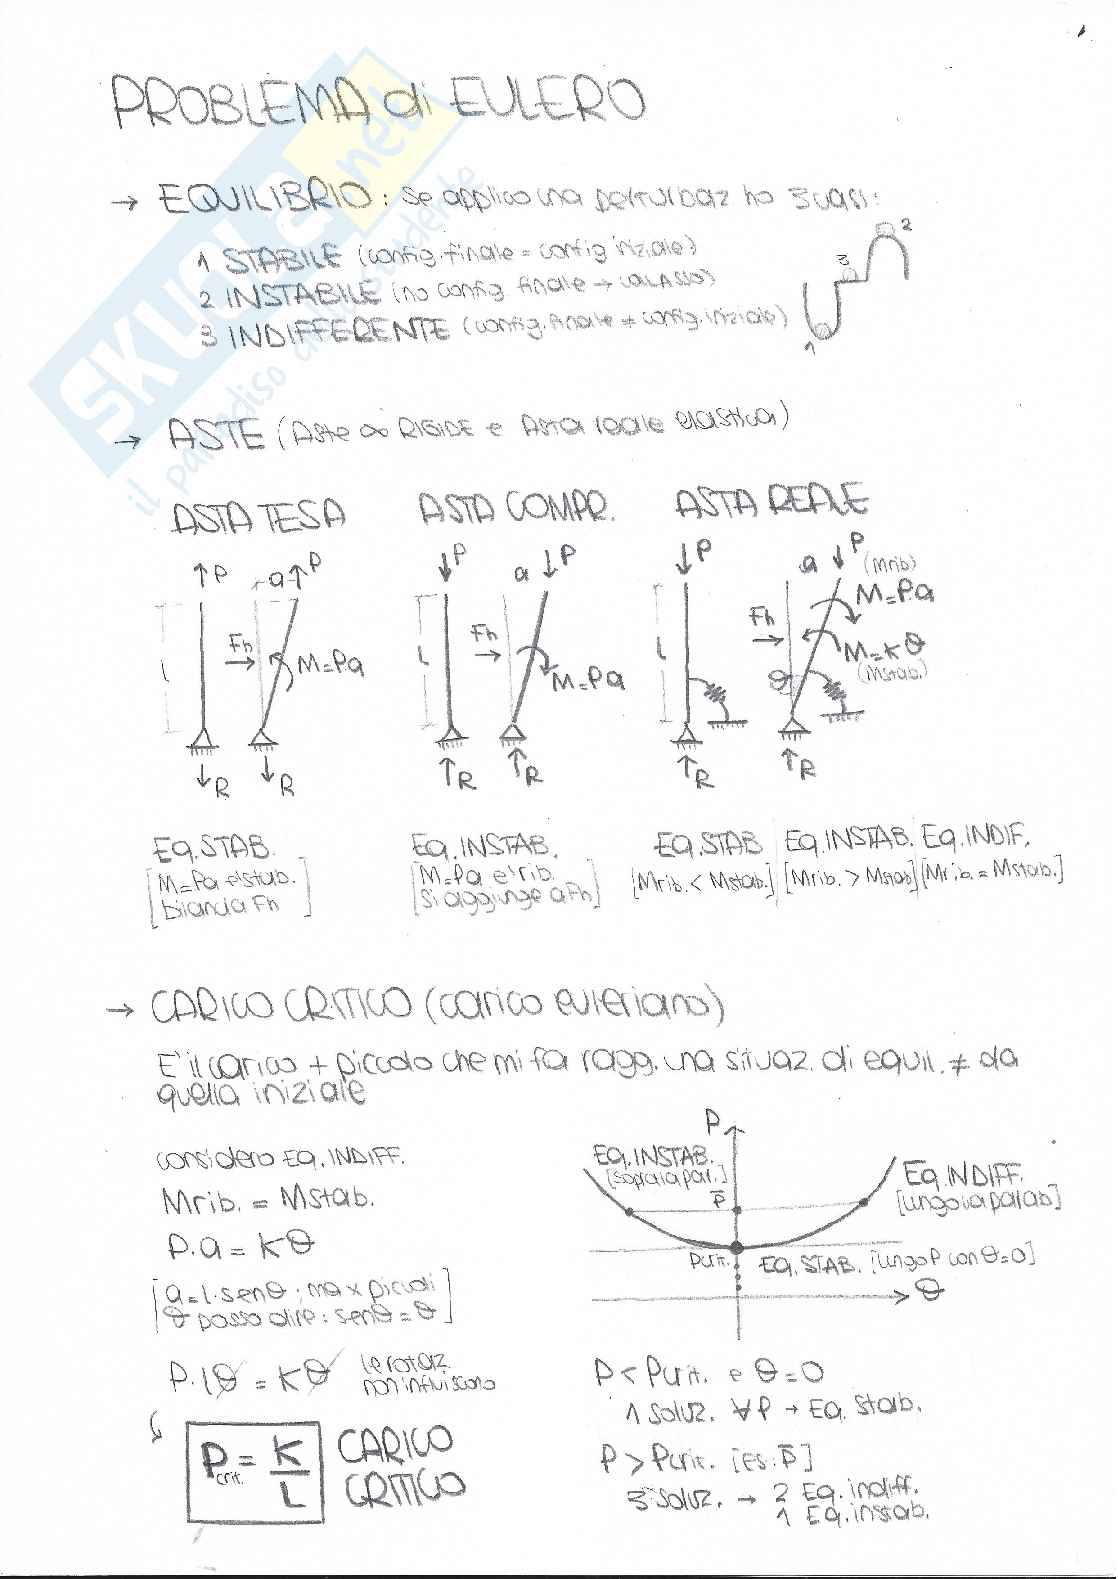 PROBLEMA di EULERO
→ EQUILIBRIO: se applico una perturbaz ho 3 casi:
1 STABILE (config. finale = config iniziale)
2 INSTABILE (no config. finale → COLASSO)
3 INDIFFERENTE (config. finale ≠ config. iniziale)
2
3
1
→ ASTE (Aste ∞ RIGIDE e Asta reale elastica)
ASTA TESA
ASTA COMPR.
ASTA REALE
P
a
P
l
Fh
M=Pa
R
R
P
a
P
l
Fh
M=Pa
R
R
P
a
P
(Mrib)
M=P.a
Fh
l
M=Kθ
(Mstab.)
θ
R
R
Eq.STAB.
[M=Pa e'stab.
bilancia Fh]
Eq.INSTAB.
[M=Pa e'rib.
Si aggiunge a Fh]
Eq.STAB
[Mrib. < Mstab.]
Eq.INSTAB.
[Mrib. > Mstab]
Eq.INDIF.
[Mrib. = Mstab.]
→ CARICO CRITICO (carico euleriano)
E' il carico + piccolo che mi fa ragg. una situaz. di equil. ≠ da
quella iniziale
considero Eq. INDIFF.
Mrib. = Mstab.
P.a = Kθ
[a=l.senθ; ma x piccoli
θ posso dire: senθ=θ]
P.lθ = Kθ
le rotaz.
non influiscono
Pcrit. = K/L
CARICO
CRITICO
P
Eq.INSTAB.
[sopra la par.]
P̄
Eq.INDIFF.
[lungo la parab]
Pcrit.
EQ. STAB. [lungo P con θ=0]
θ
P < Pcrit. e θ=0
1 soluz. ∀P → Eq. Stab.
P > Pcrit. [es: P̄]
3 soluz. → 2 Eq. indiff.
1 Eq. instab.
SKUOLA.net
il paradiso dello studente